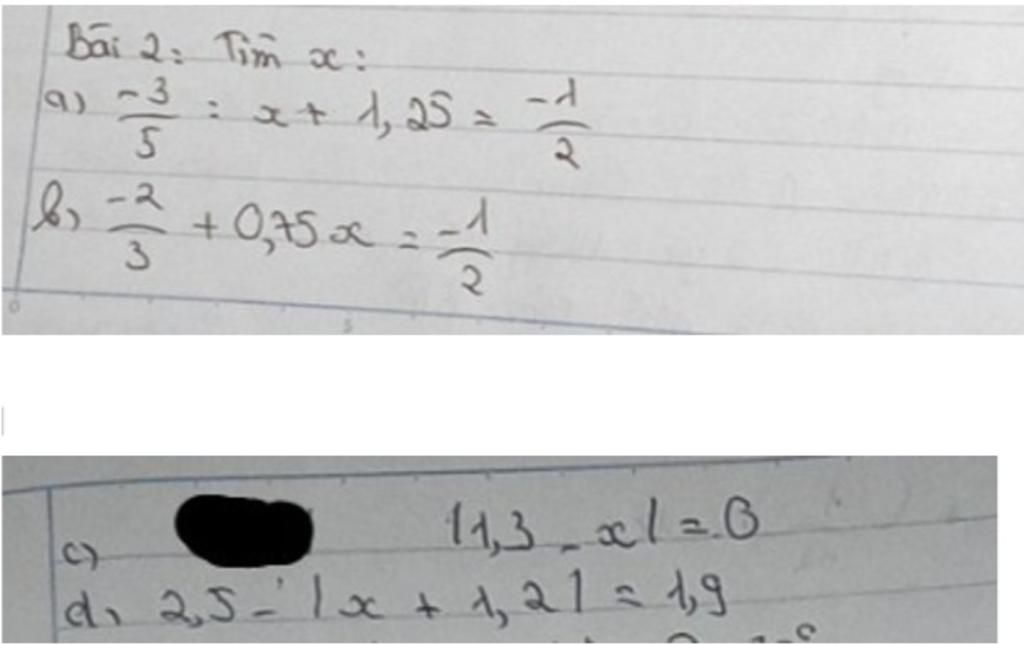 Bài 2: Tìm x:
a) -3/5 : x + 1,25 = -1/2
b) -2/3 + 0,75x = -1/2
0 5
c) |1,3 - x| = 0
d) 2,5 - |x + 1,2| = 1,9